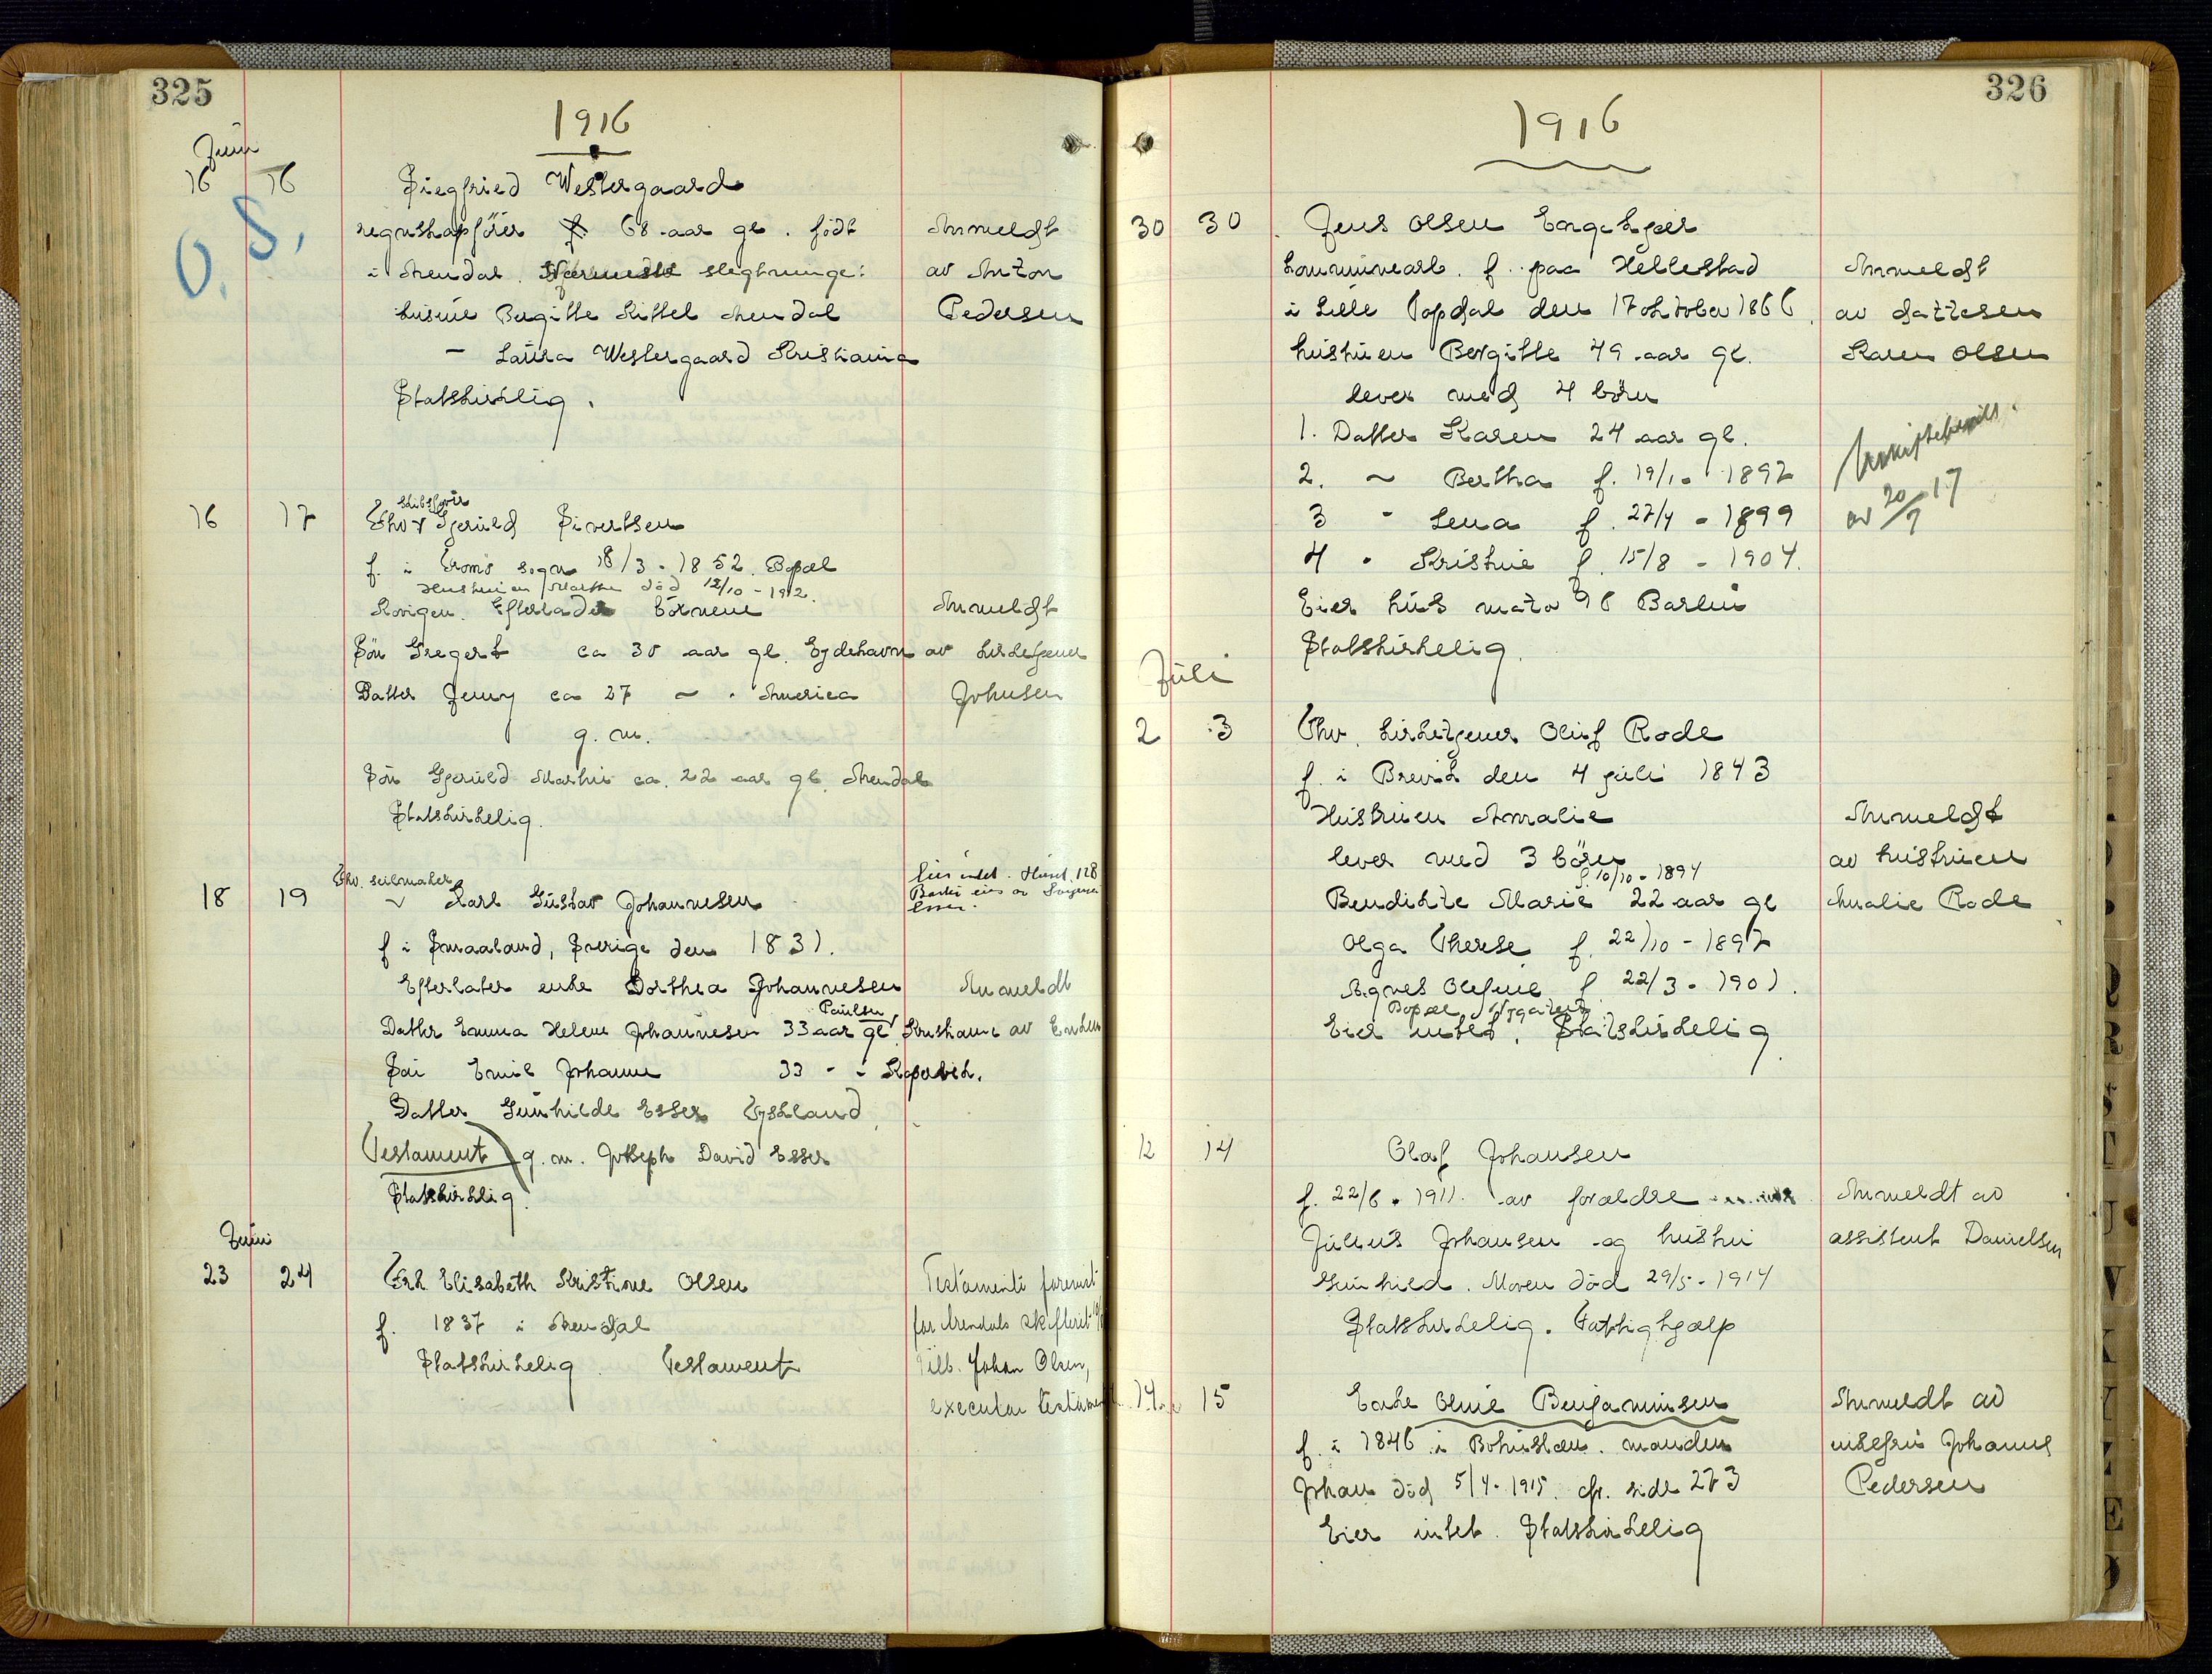 325
1916
Juni
16 16 Siegfried Westergaard
O. S.
regnskapsförer 68 aar gl. födt
i Arendal. Nærmeste slegtninge:
kusine Birgitte Kittel Arendal
- Laura Westergaard Kristiania
Statskirkelig.
Anmeldt
av Anton
Pedersen
skibsfører
16 17 Ekv Gjeruld Sivertsen
f. i Tromö sogn 18/3 - 1852. Bopæl
Hustruen Marthe död 12/10 - 1912.
Revigen. Efterlader börnene
Sön Gregert ca 30 aar gl. Eydehavn
Datter Jenny ca 27 - . America
g. m.
Sön Gjeruld Martin ca. 22 aar gl. Arendal
Statskirkelig.
Anmeldt
av kirketjener
Johnsen
Ekv. seilmaker
18 19 Karl Gustav Johannesen
f i Smaaland, Sverige den 1831.
Efterlater enke Dorthea Johannesen
Paulsen
Datter Emma Helene Johannesen 33 aar gl. Kristiania
Sön Emil Johannes 33 - -
Datter Gunhilde Esser Tyskland
Testament g. m. Joseph David Esser
Statskirkelig.
Eier intet. Huset 128
Barbu eies av
Esser.
Anmeldt
av Enken
Juni
23 24 Frk Elisabeth Kristine Olsen
f. 1837 i Arendal
Statskirkelig Testament
Testamente
for Arendals skifteret
Johan Olsen,
executor testamenti
326
1916
30 30 Jens Olsen
kommunearb. f. paa Hellestad
i Lille Topdal den 17 oktober 1866
hustruen Bergitte 49 aar gl.
lever med 4 börn
1. Datter Karen 24 aar gl.
2. ~ Bertha f. 19/1 - 1897
3 - Lena f. 27/4 - 1899
4 - Kristine f. 15/8 - 1904.
Eier hus matr 98 Barbu
Statskirkelig.
Anmeldt
av datteren
Karen Olsen
av 20/7 17
Juli
2 3 Fhv. kirketjener Oluf Rode
f. i Brevik den 4 juli 1843
Hustruen Amalie
lever med 3 börn
f. 10/10 - 1894
Bendikte Marie 22 aar gl
Olga Therese f. 22/10 - 1897
Agnes Olefine f 22/3 - 1901.
Bopæl Nygaten
Eier intet. Statskirkelig
Anmeldt
av hustruen
Amalie Rode
12 14 Olaf Johansen
f. 22/6 - 1911. av forældre
Julius Johansen og hustru
Gunhild. Moren död 29/5 - 1914
Statskirkelig. Fattighjælp
Anmeldt av
assistent Danielsen
14 15 Enke Oline Benjaminsen
f. i 1846 i Bohuslæn. manden
Johan död 5/4 - 1915. cfr. side 273
Eier intet. Statskirkelig
Anmeldt av
enkefru Johanne
Pedersen